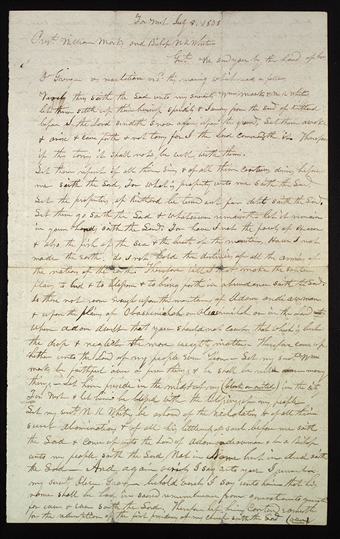 Far West July 8, 1838
William Marks and Bishop N. K. Whitney
We send you by the hand of
revelation
Verily thus saith the Lord unto my servant Wm Marks & N. K. Whitney
let them settle up their business speedily & journey from the land of Kirtland
before I the Lord sendeth snow again upon the ground, Let them awake
& arise & come forth & not tarry for I the Lord command it Therefore
if they tarry it shall not be well with them.
Let them repent of all their sins & of all their covetous desires before
me saith the Lord, For what is property unto me saith the Lord
Let the properties of Kirtland be turned out for debts saith the Lord
Let them go saith the Lord & whatsoever remaineth let it remain
in your hands saith the Lord. For have I not the fowls of heaven
& also the fish of the sea & the beasts of the mountains, Have I not
made the earth. do I not hold the destinies of all the armies of
the nations of the Therefore will I not make the
to bud & to blossom & to bring forth in abundance saith the Lord
Is there not room enough upon the mountains of Adam ondi awman
& upon the plains of
Adam dwelt that you should covet that which is but
the drop & neglect the more weighty matters Therefore come up
hither unto the Land of my people even Zion — Let my servant Wm
Marks be faithful over a few things & he shall be ruler over many
things — Let him preside in the midst of my people in the City
Far West & let him be blessed with the blessings of my people
Let my servant N. K. Whitney be ashamed of the Nicholatans & of all their
secret abominations & of all his littleness of soul before me saith
the Lord & come up unto the Land of Adam ondi awman & be a bishop
unto my people saith the Lord Not in Name but in deed saith
the Lord — And again verily I say unto you I remember
my servant Oliver Granger behold verily I say unto him that his
name shall be had in sacred remembrance from generation to generation
for ever & ever saith the Lord, Therefore let him contend earnestly
for the redemption of the first presidency of my church saith the Lord